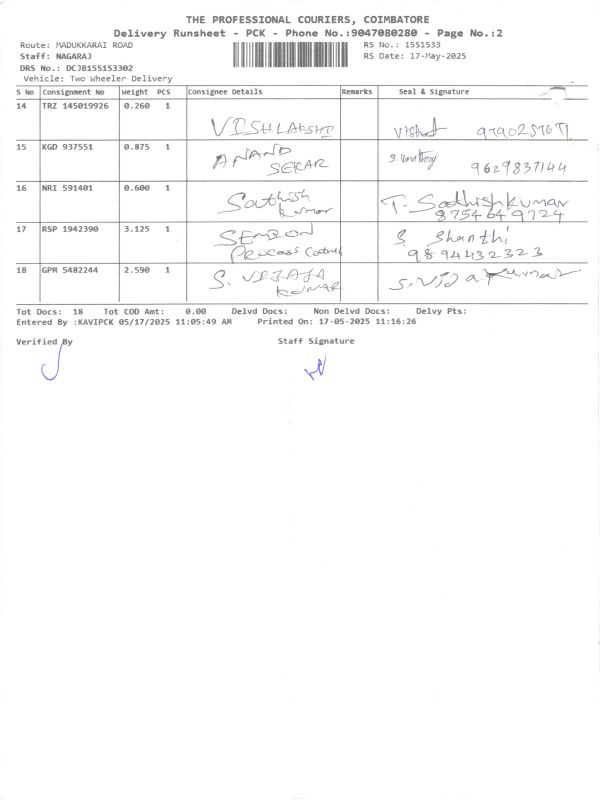 THE PROFESSIONAL COURIERS, COIMBATORE
Delivery Runsheet - PCK - Phone No.:9047080280 - Page No.:2
Route: MADUKKARAI ROAD RS No.: 1551533
Staff: NAGARAJ RS Date: 17-May-2025
DRS No.: DCJB155153302
Vehicle: Two Wheeler Delivery
S No Consignment No Weight PCS Consignee Details Remarks Seal & Signature
14 TRZ 145019926 0.260 1
VISHLAKSHI
15 KGD 937551 0.875 1 ANAND
SEKAR 9629837144
16 NRI 591401 0.600 1 Sathish T. Sathishkumar
kumar 8754649724
17 RSP 1942390 3.125 1 S. Shanthi
Process 9894432323
18 GPM 5482244 2.590 1 S. VIJAJA S.Vijayakumar
KUMAR
Tot Docs: 18 Tot COD Amt: 0.00 Delvd Docs: Non Delvd Docs: Delvy Pts:
Entered By :KAVIPCK 05/17/2025 11:05:49 AM Printed On: 17-05-2025 11:16:26
Verified By Staff Signature